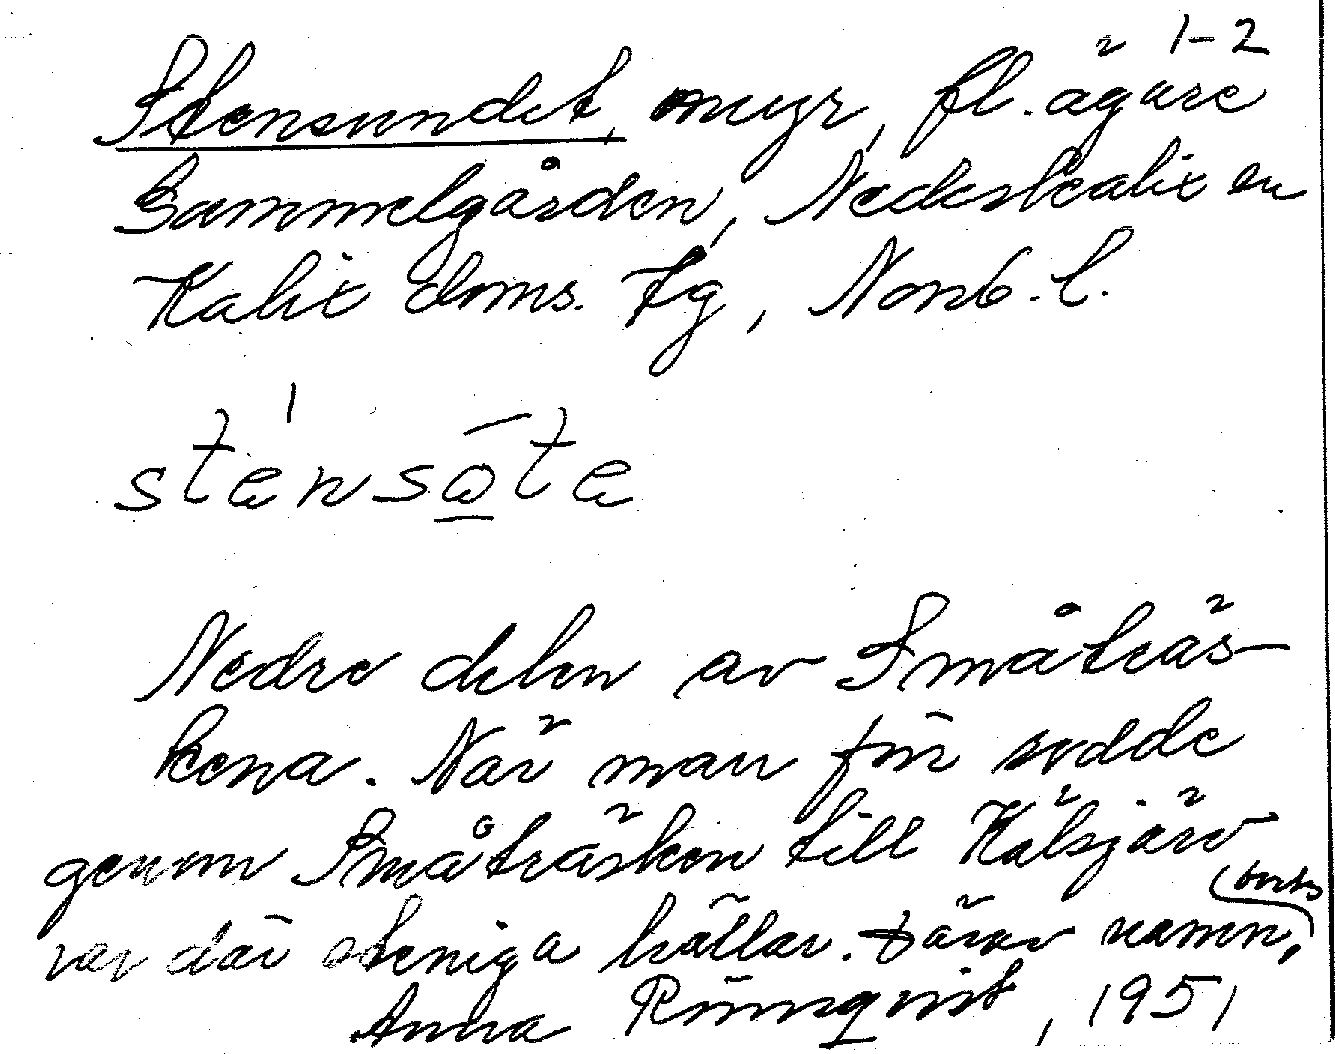 1-2
Stensundet, myr, fl. ägare
Gammelgården, Nederkalix sn
Kalix doms. tg, Norrb. l.
Nedre delen av Småträs-
kena. När man förr rodde
genom Småträsken till Kälsjärv
var där steniga hällar. Därav namn,
(torts
Anna Rönnqvist, 1951